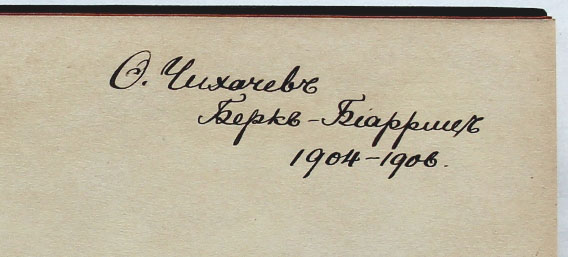 Ѳ. Чихачевъ
Беркъ-Біаррицъ
1904-1906.